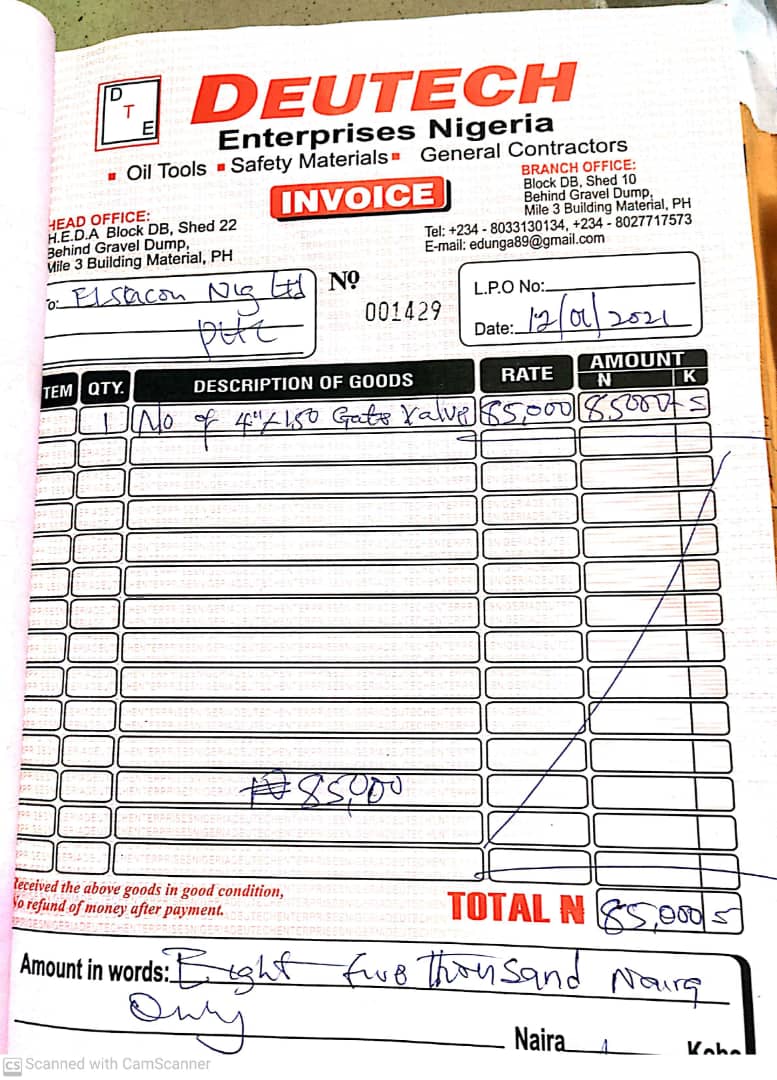 D
T
E
DEUTECH
Enterprises Nigeria
▪ Oil Tools ▪ Safety Materials ▪ General Contractors
INVOICE
HEAD OFFICE:
H.E.D.A Block DB, Shed 22
Behind Gravel Dump,
Mile 3 Building Material, PH
BRANCH OFFICE:
Block DB, Shed 10
Behind Gravel Dump,
Mile 3 Building Material, PH
Tel: +234 - 8033130134, +234 - 8027717573
E-mail: edunga89@gmail.com
To: Elsacon Nig Ltd
PHC
Nº
001429
L.P.O No:
Date: 12/01/2021
TEM QTY. DESCRIPTION OF GOODS RATE AMOUNT
N K
1 No of 4"/150 Gate Valve 85,000 85000
₦85,000
Received the above goods in good condition,
No refund of money after payment.
TOTAL N 85,000
Amount in words: Eight five thousand Naira
Only
Naira Kobo
CS Scanned with CamScanner